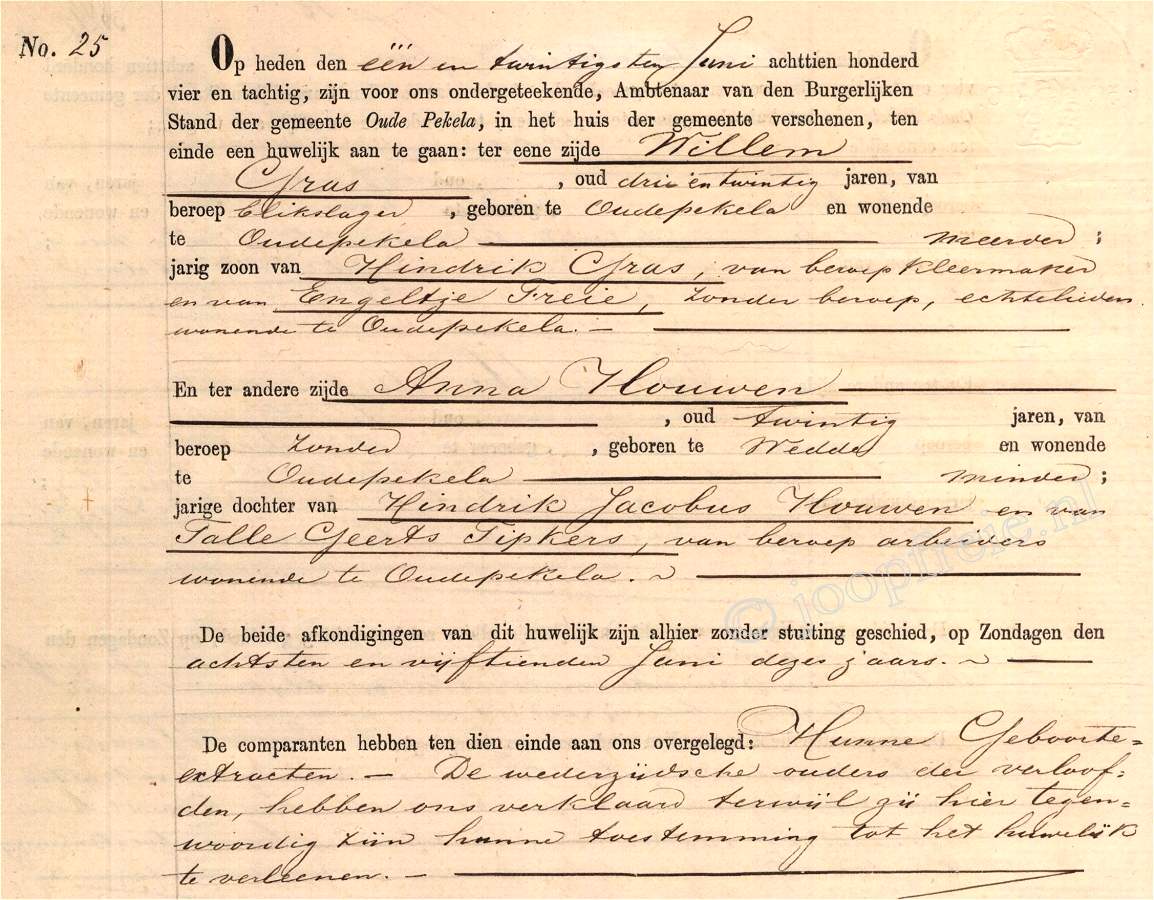 No. 25
Op heden den één en twintigsten Juni achttien honderd
vier en tachtig, zijn voor ons ondergeteekende, Ambtenaar van den Burgerlijken
Stand der gemeente Oude Pekela, in het huis der gemeente verschenen, ten
einde een huwelijk aan te gaan: ter eene zijde Willem
Gras , oud drie entwintig jaren, van
beroep Blikslager , geboren te Oudepekela en wonende
te Oudepekela meerder ;
jarig zoon van Hindrik Gras, van beroep kleermaker
en van Engeltje Freie, zonder beroep, echtelieden
wonende te Oudepekela. —
En ter andere zijde Anna Houwen
, oud twintig jaren, van
beroep zonder , geboren te Wedde en wonende
te Oudepekela minder ;
jarige dochter van Hindrik Jacobus Houwen en van
Talle Geerts Tipkers, van beroep arbeiders
wonende te Oudepekela. ~
© joopfreie.nl
De beide afkondigingen van dit huwelijk zijn alhier zonder stuiting geschied, op Zondagen den
achtsten en vijftienden Juni dezes jaars. ~
De comparanten hebben ten dien einde aan ons overgelegd: Hunne Geboorte=
extracten. — De wederzijdsche ouders der verloof=
den, hebben ons verklaard terwijl zij hier tegen=
woordig zijn hunne toestemming tot het huwelijk
te verleenen. —